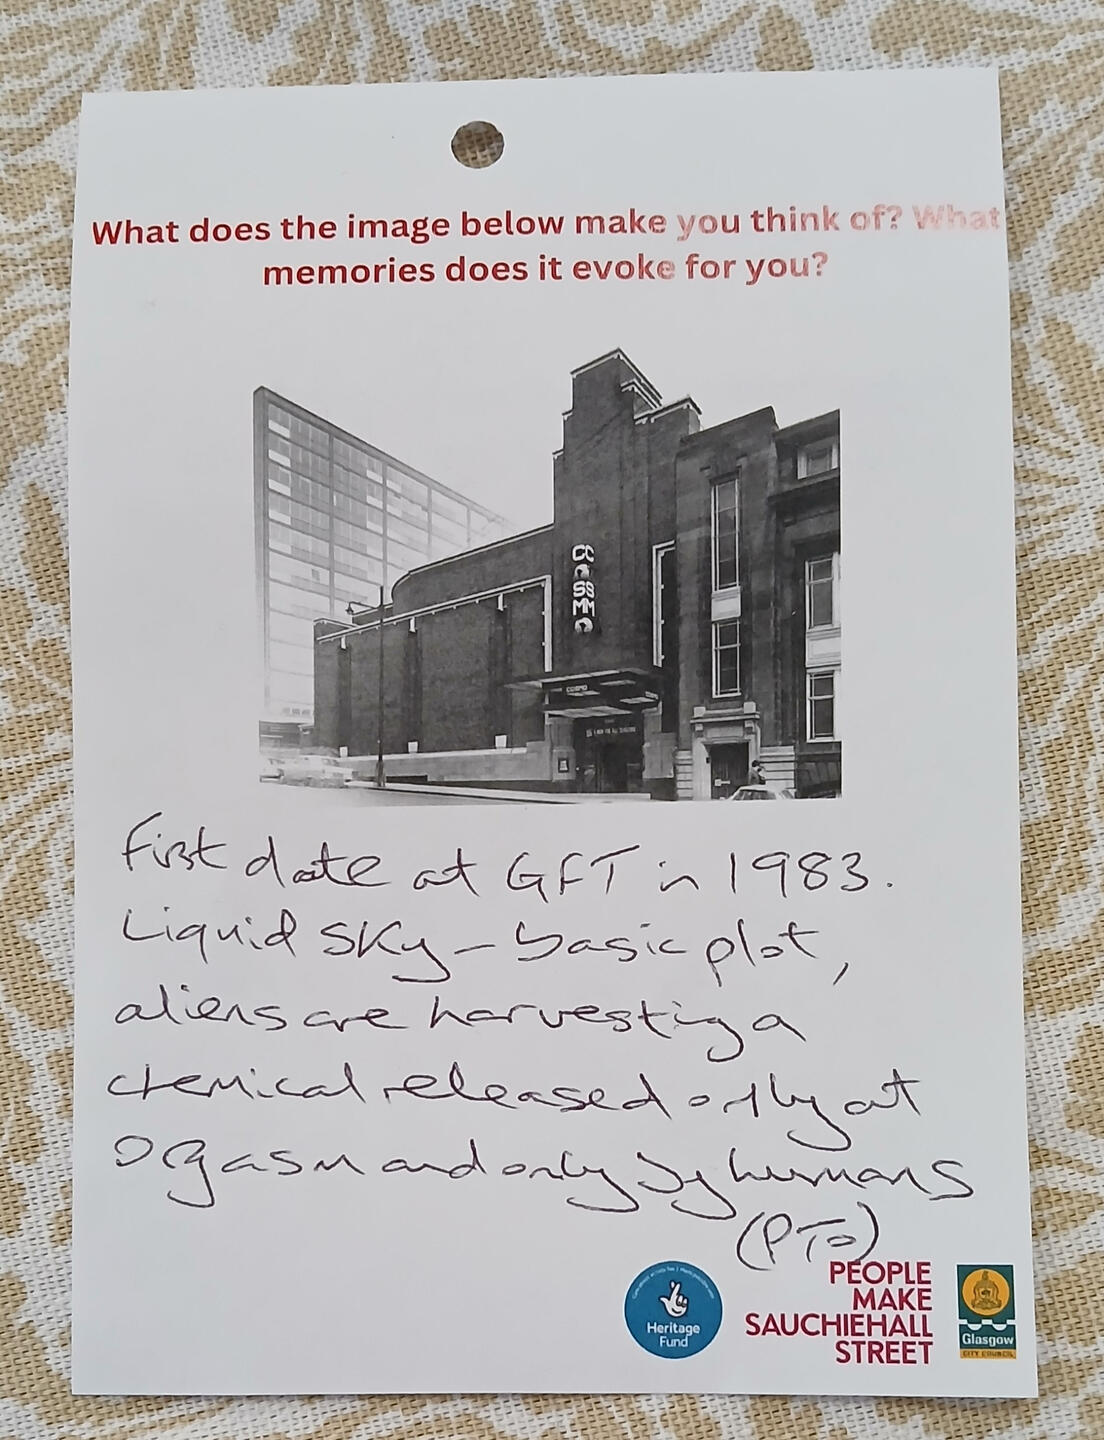 What does the image below make you think of? What
memories does it evoke for you?
CC
O
SS
MM
O
COSMO
First date at GFT in 1983.
Liquid Sky – basic plot,
aliens are harvesting a
chemical released only at
orgasm and only by humans
(PTO)
Heritage
Fund
PEOPLE
MAKE
SAUCHIEHALL
STREET
Glasgow
CITY COUNCIL